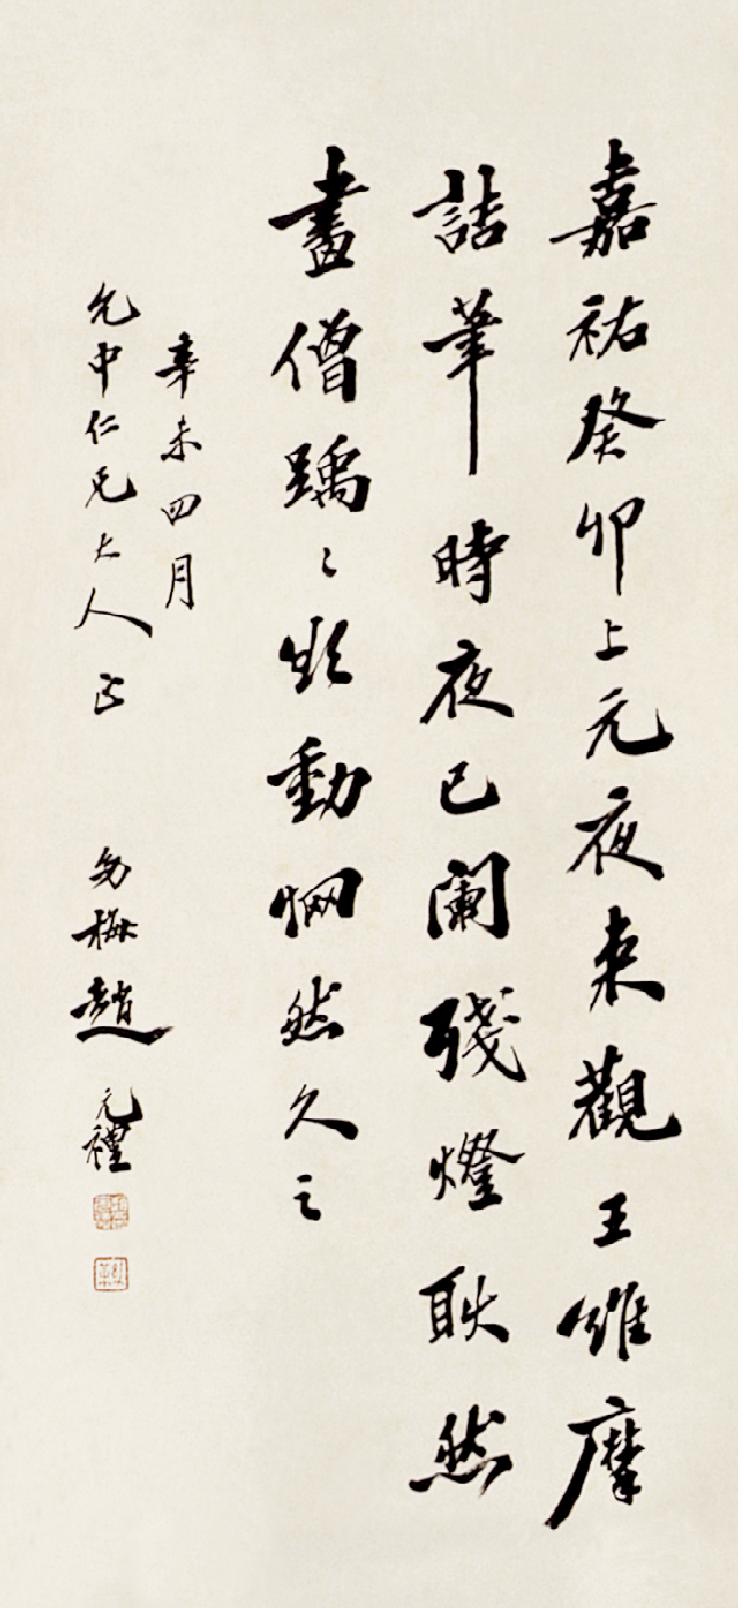 嘉祐癸卯上元夜來觀王維摩
詰筆時夜已闌殘燈耿然
畫僧踽〻欲動惘然久之
辛未四月
允中仁兄大人正
幼梅趙元禮